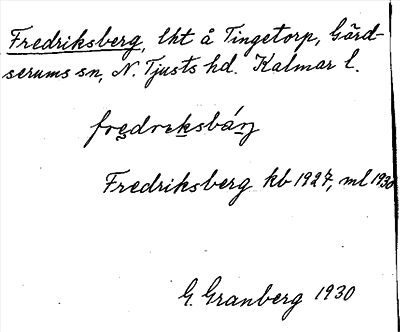 Fredriksberg, lht å Tingetorp, Gärd-
serums sn, N. Tjusts hd. Kalmar l.
fredreksbárj
Fredriksberg kb 1927, ml 1930
G. Granberg 1930